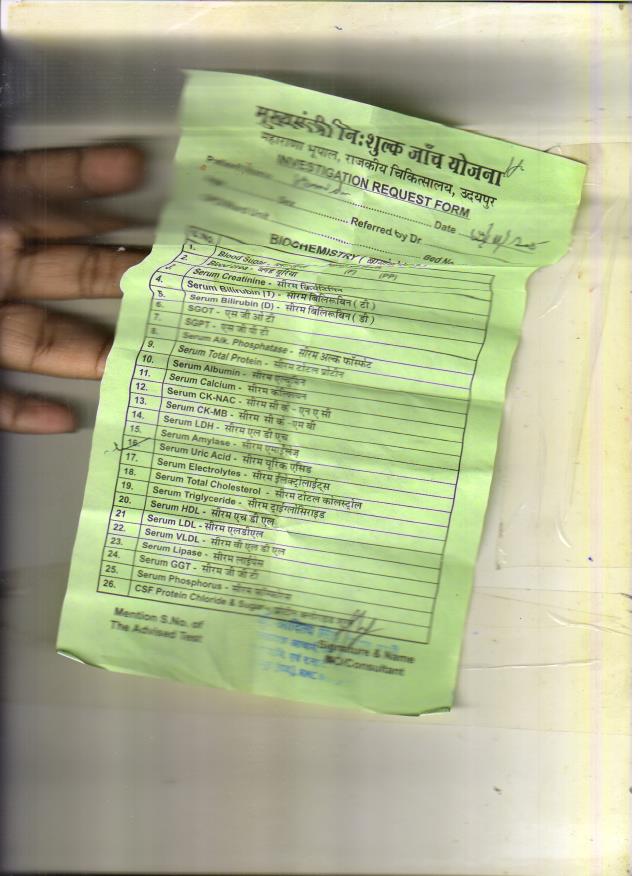 मुख्यमंत्री निःशुल्क जाँच योजना
महाराणा भूपाल, राजकीय चिकित्सालय, उदयपुर
INVESTIGATION REQUEST FORM
Date
Sex Referred by Dr
Bed No
BIOCHEMISTRY
1. Blood Sugar - (F) (PP)
2.
3. Serum Creatinine - सीरम क्रियेटिनिन
4. Serum Bilirubin (T) - सीरम बिलिरूबिन ( टी )
5. Serum Bilirubin (D) - सीरम बिलिरूबिन ( डी )
6. SGOT - एस जी ओ टी
7. SGPT - एस जी पी टी
8. Serum Alk. Phosphatase - सीरम अल्क फॉस्फेट
9. Serum Total Protein - सीरम टोटल प्रोटीन
10. Serum Albumin - सीरम एल्बुमिन
11. Serum Calcium - सीरम कैल्शियम
12. Serum CK-NAC - सीरम सी के - एन ए सी
13. Serum CK-MB - सीरम सी के - एम बी
14. Serum LDH - सीरम एल डी एच
15. Serum Amylase - सीरम एमाईलेज
16. Serum Uric Acid - सीरम यूरिक एसिड
17. Serum Electrolytes - सीरम ईलेक्ट्रोलाईट्स
18. Serum Total Cholesterol - सीरम टोटल कोलस्ट्रोल
19. Serum Triglyceride - सीरम ट्राईग्लिसिराइड
20. Serum HDL - सीरम एच डी एल
21 Serum LDL - सीरम एलडीएल
22. Serum VLDL - सीरम वी एल डी एल
23. Serum Lipase - सीरम लाईपेस
24. Serum GGT - सीरम जी जी टी
25. Serum Phosphorus - सीरम
26. CSF Protein Chloride & Sugar -
Mention S.No. of
The Advised Test
Signature & Name
MO/Consultant